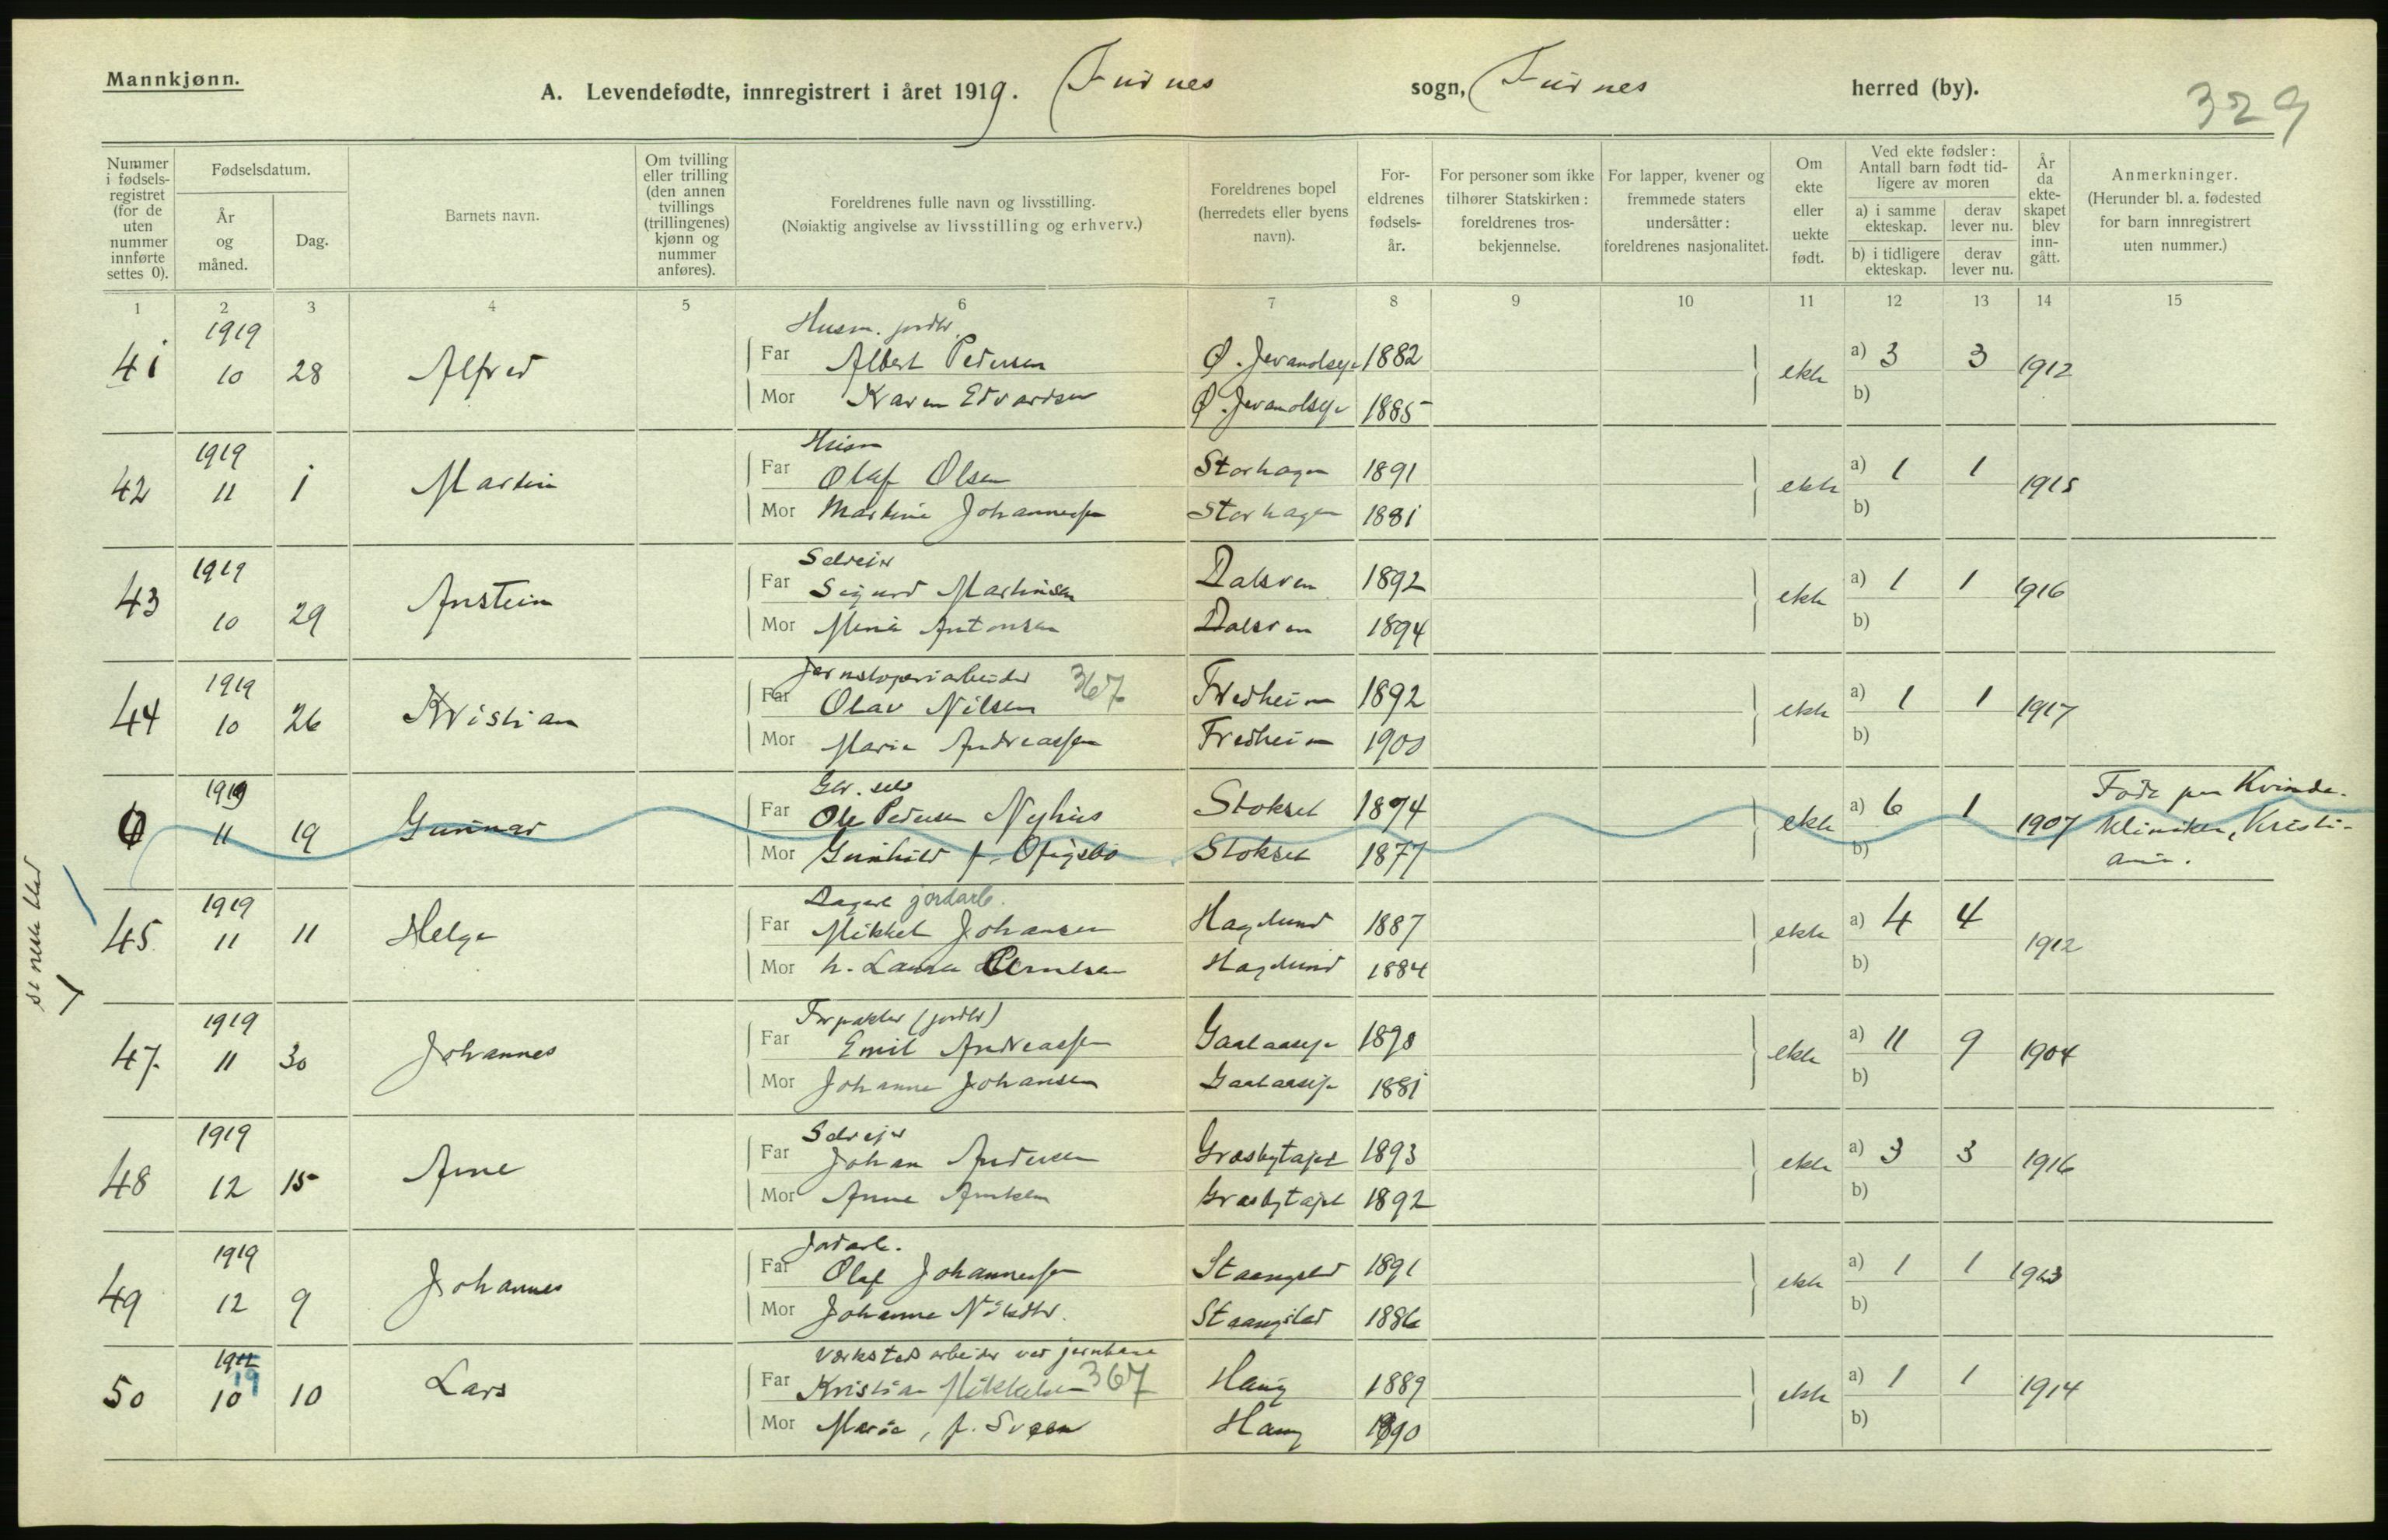 Mannkjønn.
A. Levendefødte, innregistrert i året 1919. Furnes sogn, Furnes herred (by).
329
Nummer i fødsels-registret (for de uten nummer innførte settes 0).
Fødselsdatum.
År og måned.
Dag.
Barnets navn.
Om tvilling eller trilling (den annen tvillings (trillingenes) kjønn og nummer anføres).
Foreldrenes fulle navn og livsstilling.
(Nøiaktig angivelse av livsstilling og erhverv.)
Foreldrenes bopel (herredets eller byens navn).
For-eldrenes fødsels-år.
For personer som ikke tilhører Statskirken: foreldrenes tros-bekjennelse.
For lapper, kvener og fremmede staters undersåtter: foreldrenes nasjonalitet.
Om ekte eller uekte født.
Ved ekte fødsler: Antall barn født tid-ligere av moren
a) i samme ekteskap.
derav lever nu.
b) i tidligere ekteskap.
derav lever nu.
År da ekte-skapet blev inn-gått.
Anmerkninger.
(Herunder bl. a. fødested for barn innregistrert uten nummer.)
1 2 3 4 5 6 7 8 9 10 11 12 13 14 15
1919 Husm. jordbr.
41 10 28 Alfred Far Albert Pedersen 1882 ekte a) 3 3 1912
Mor Karen Edvardsen 1885 b)
1919 Husm
42 11 1 Martin Far Olaf Olsen Storhagen 1891 ekte a) 1 1 1915
Mor Martine Johannessen Storhagen 1881 b)
1919 Selveier
43 10 29 Anstein Far Sigurd Martinsen Dalsven 1892 ekte a) 1 1 1916
Mor Mina Antonsen Dalsven 1894 b)
1919 Jernstøperiarbeider 367
44 10 26 Kristian Far Olav Nilsen Fredheim 1892 ekte a) 1 1 1917
Mor Marie Andreassen Fredheim 1900 b)
1919
0 11 19 Gunnar Far Ole Pedersen Nyhus Stokset 1874 ekte a) 6 1 1907 Født paa Kvinde-
Mor Gunhild f. Stokset 1877 b) kliniken, Kristi-
ania.
se neste blad
1919 Dagarb jordarb.
45 11 11 Helge Far Mikkel Johansen Haglund 1887 ekte a) 4 4 1912
Mor h. Laura Haglund 1884 b)
1919 Forpakter (jordbr)
47 11 30 Johannes Far Emil Andreassen Gaalaaseje ekte a) 11 9 1904
Mor Johanne Johansen Gaalaaseje 1881 b)
1919 Selvejer
48 12 15 Arne Far Johan Andersen 1893 ekte a) 3 3 1916
Mor Anne 1892 b)
1919 Jordarb.
49 12 9 Johannes Far Olaf Johannessen Staangstad 1891 ekte a) 1 1 1913
Mor Johanne Staangstad 1886 b)
19 Verkstedarbeider ved jernbane
50 10 10 Lars Far Kristian Mikkelsen 367 Haug 1889 ekte a) 1 1 1914
Mor Marie, f. Sveen Haug 1890 b)